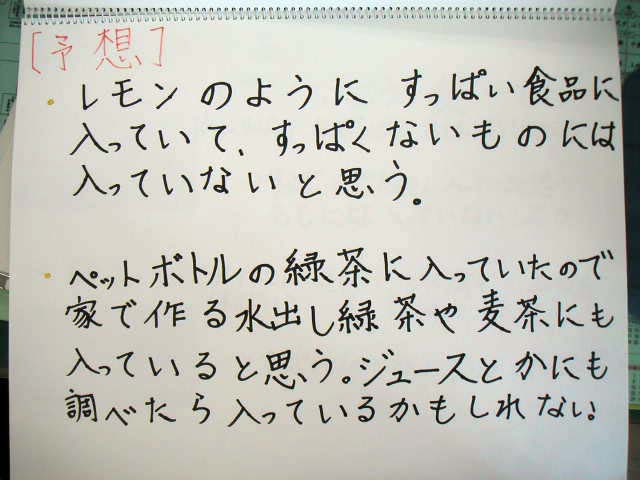 [予想]
・レモンのように すっぱい食品に
入っていて、すっぱくないものには
入っていないと思う。
・ペットボトルの緑茶に入っていたので
家で作る水出し緑茶や麦茶にも
入っていると思う。ジュースとかにも
調べたら入っているかもしれない。